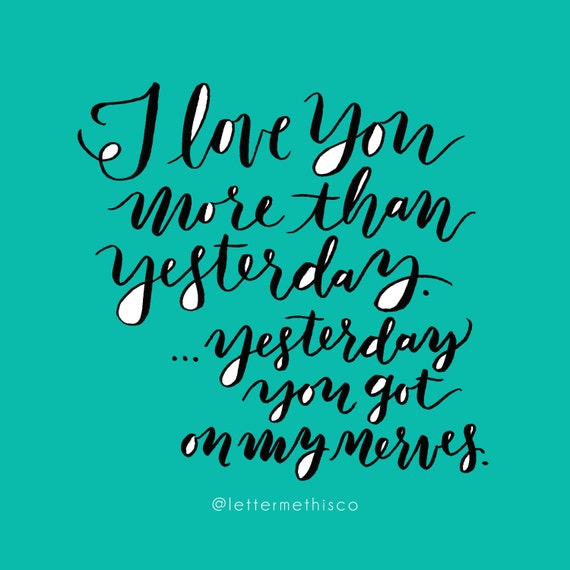 I love you
more than
yesterday.
...yesterday
you got
on my nerves.
@lettermethisco